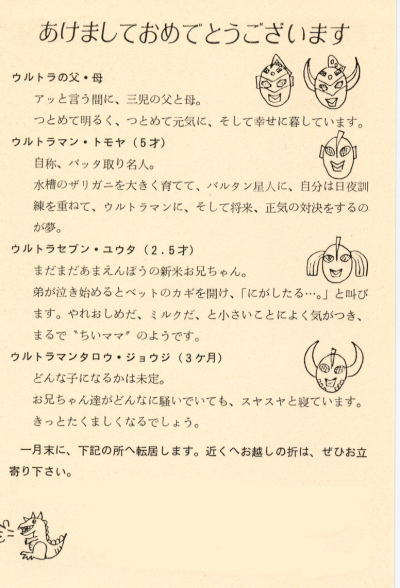 あけましておめでとうございます
ウルトラの父・母
アッと言う間に、三児の父と母。
つとめて明るく、つとめて元気に、そして幸せに暮しています。
ウルトラマン・トモヤ(5才)
自称、バッタ取り名人。
水槽のザリガニを大きく育てて、バルタン星人に、自分は日夜訓
練を重ねて、ウルトラマンに、そして将来、正気の対決をするの
が夢。
ウルトラセブン・ユウタ(2.5才)
まだまだあまえんぼうの新米お兄ちゃん。
弟が泣き始めるとベットのカギを開け、「にがしたる…。」と叫び
ます。やれおしめだ、ミルクだ、と小さいことによく気がつき、
まるで〝ちいママ〟のようです。
ウルトラマンタロウ・ジョウジ(3ケ月)
どんな子になるかは未定。
お兄ちゃん達がどんなに騒いでいても、スヤスヤと寝ています。
きっとたくましくなるでしょう。
一月末に、下記の所へ転居します。近くへお越しの折は、ぜひお立
寄り下さい。